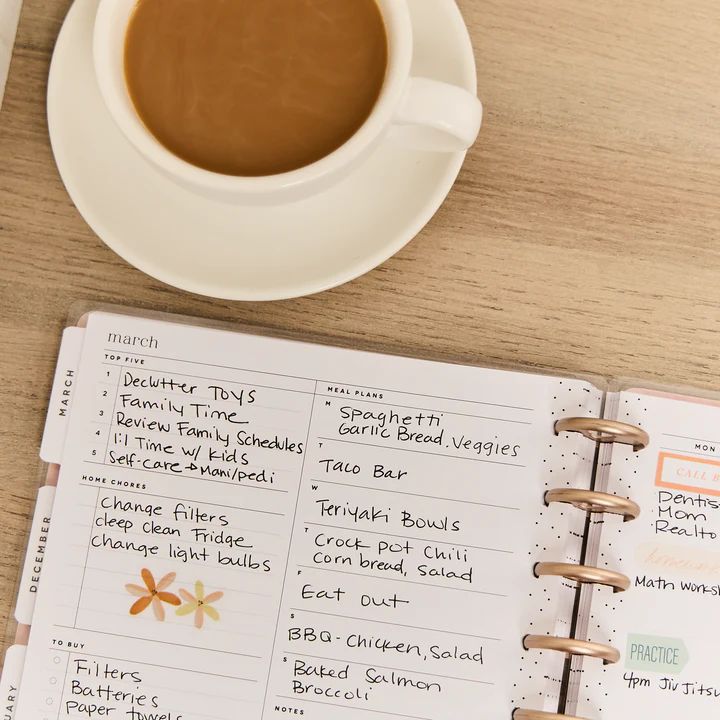 MARCH
DECEMBER
march
TOP FIVE
1 Declutter TOYS
2 Family Time
3 Review Family Schedules
4 1:1 Time w/ Kids
5 Self-care → Mani/pedi
HOME CHORES
Change filters
cleep clean Fridge
change light bulbs
TO BUY
Filters
Batteries
paper towels
MEAL PLANS
M Spaghetti
Garlic Bread, Veggies
T Taco Bar
W Teriyaki Bowls
T Crock pot Chili
Corn bread, Salad
F Eat out
S BBQ-Chicken, Salad
S Baked Salmon
Broccoli
NOTES
MON
CALL
Mom
Math
PRACTICE
4pm Jiu Jitsu